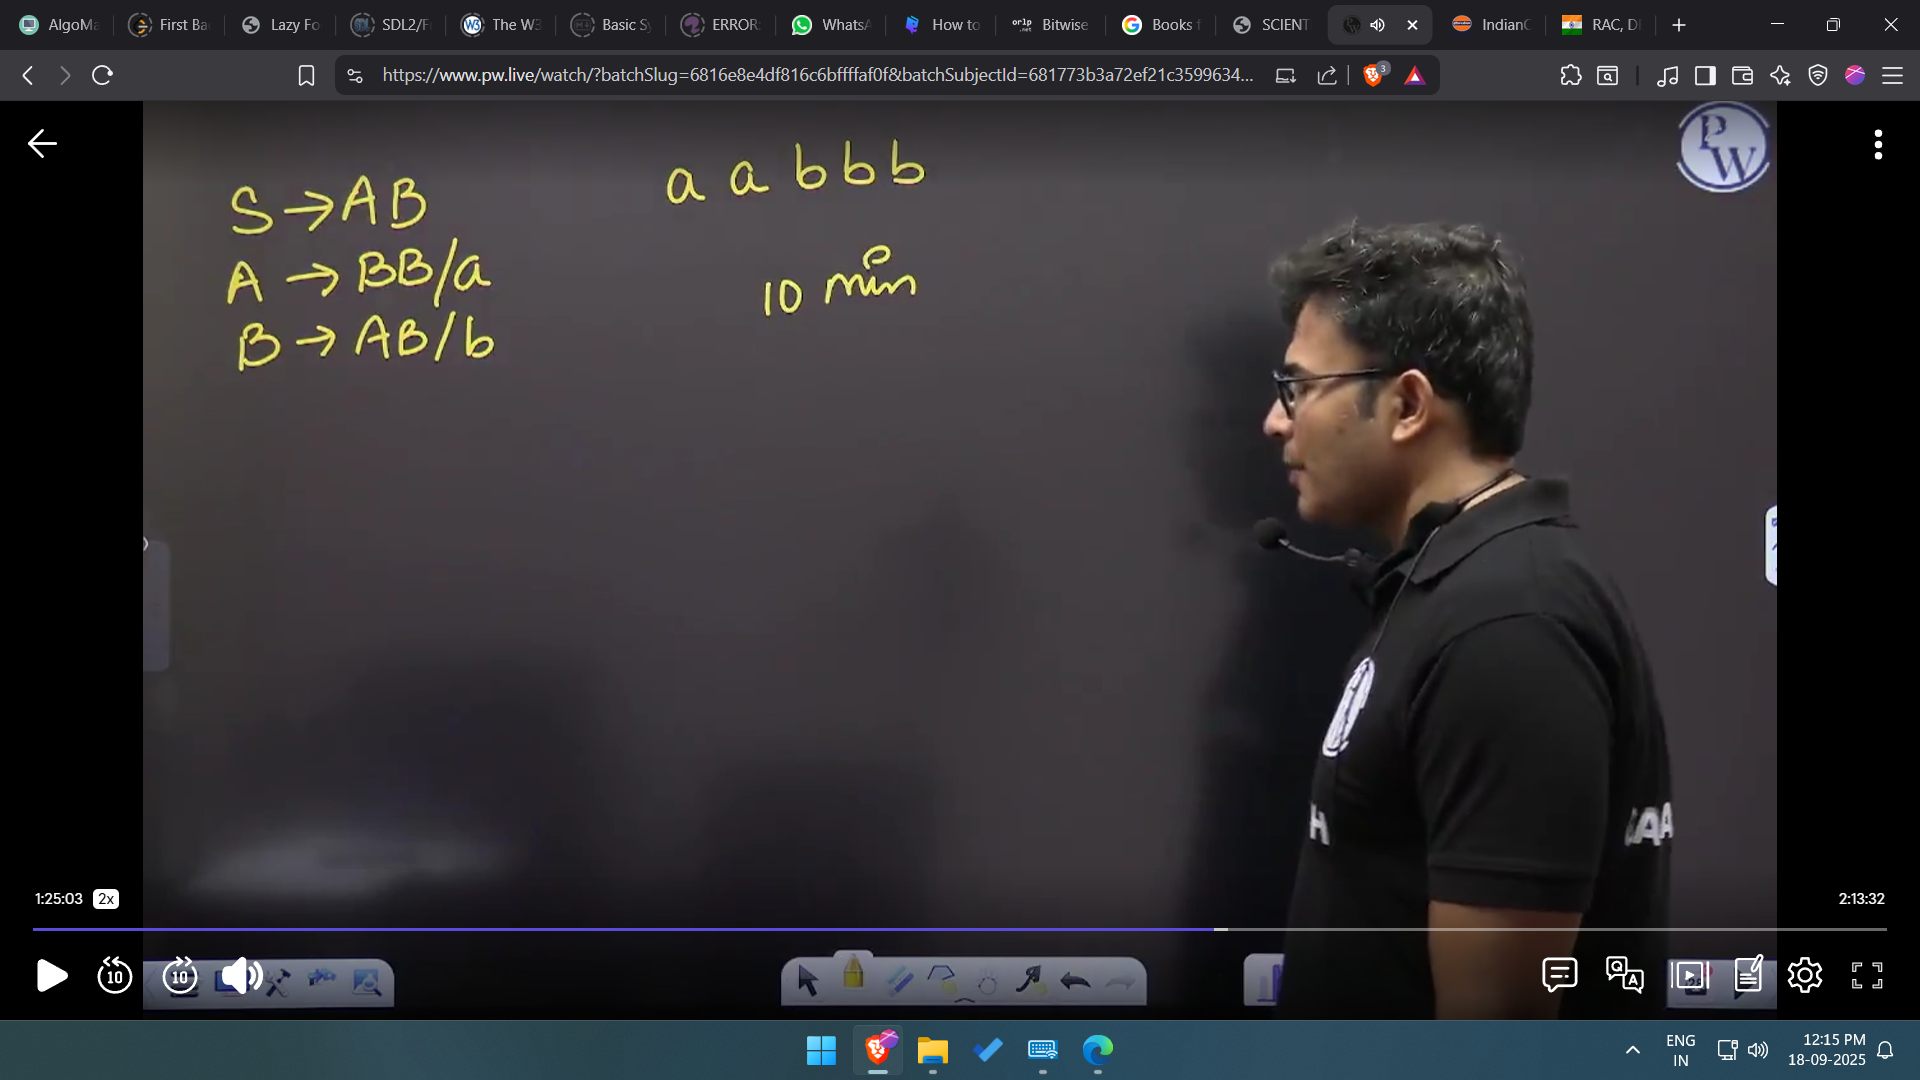 AlgoMa
First Ba
Lazy Fo
SDL2/Fi
The W3
Basic Sy
ERROR:
WhatsA
How to
Bitwise
Books f
SCIENT
IndianO
RAC, D
https://www.pw.live/watch/?batchSlug=6816e8e4df816c6bffffaf0f&batchSubjectId=681773b3a72ef21c3599634...
3
PW
a a b b b
S → AB
A → BB/a
B → AB/b
10 min
1:25:03 2x
2:13:32
10 10
ENG
IN
12:15 PM
18-09-2025